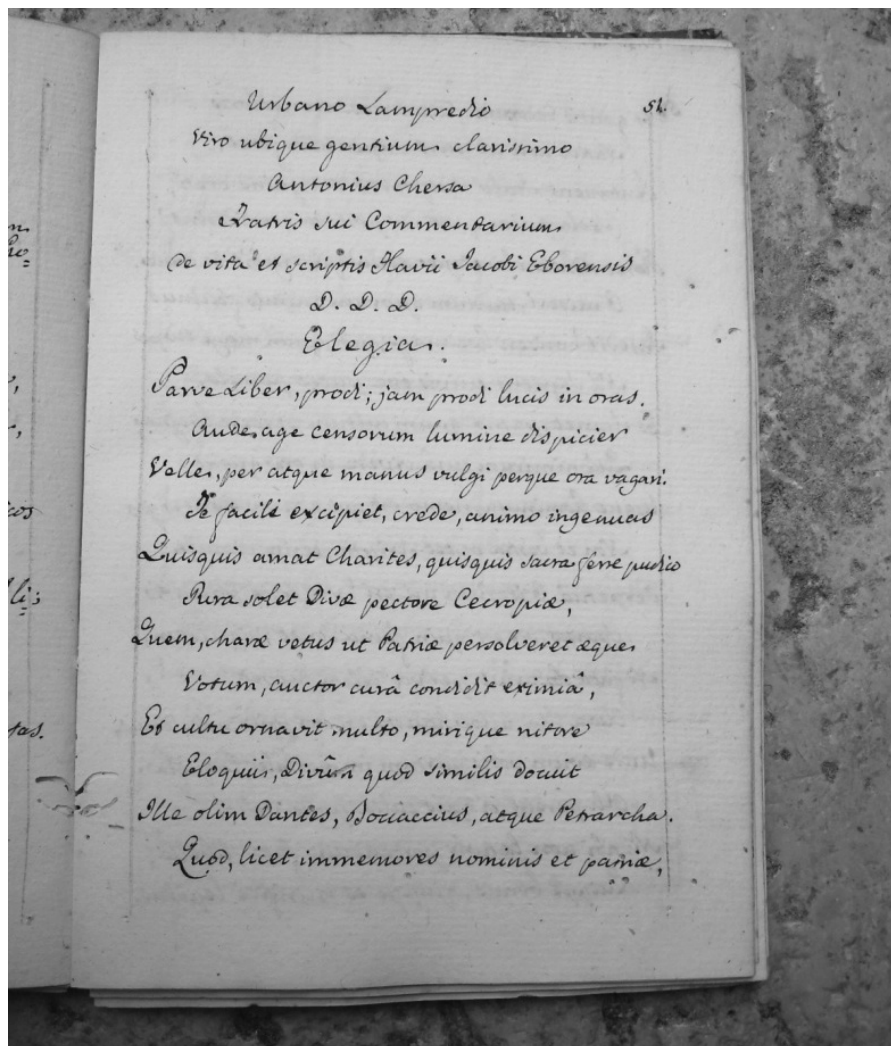 54.
Urbano Lampredio
Viro ubique gentium clarissimo
Antonius Chersa
Fratris sui Commentarium
de vita et scriptis Flavii Jacobi Eborensis
D. D. D.
Elegia.
Parve Liber, prodi; jam prodi lucis in oras.
Aude, age censorum lumine dispicier
Velle, per atque manus vulgi perque ora vagari.
Te facile excipiet, crede, animo ingenuas
Quisquis amat Charites, quisquis sacra ferre pudico
Pura solet Divæ pectore Cecropiæ,
Quem, charæ vetus ut Patriæ persolveret æque
Votum, auctor curâ condidit eximiâ,
Et cultu ornavit multo, mirique nitore
Eloquii, Divûm quod similis docuit
Ille olim Dantes, Boccaccius, atque Petrarcha.
Quod, licet immemores nominis et patriæ,
n
li;
tas.